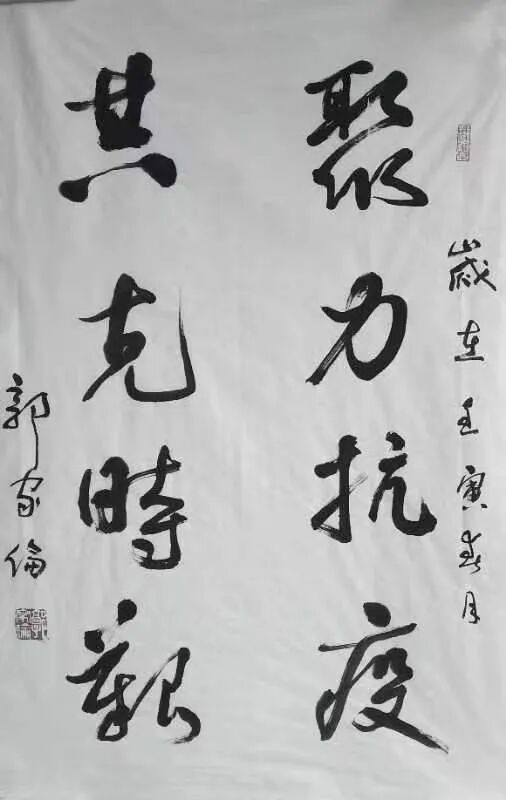 歲在壬寅春月
聚力抗疫
共克時艱
郭家倫